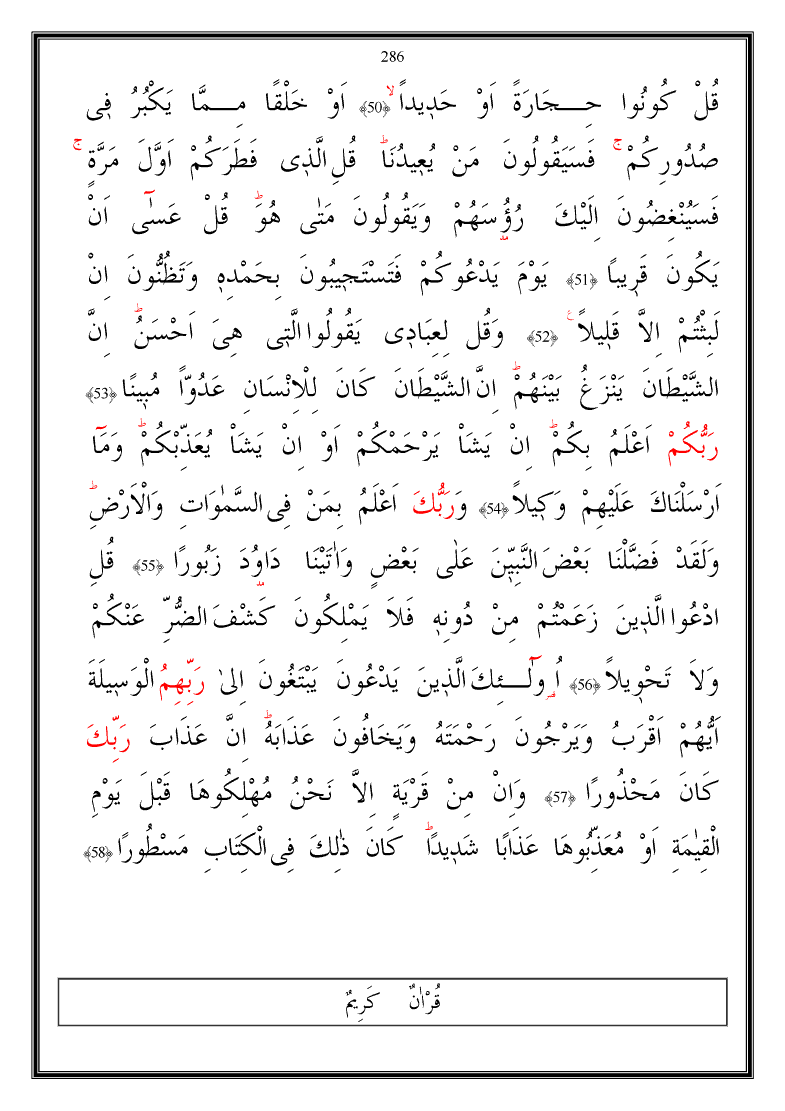 286
قُلْ كُونُوا حِـــجَارَةً اَوْ حَد۪يداًۙ ﴿50﴾ اَوْ خَلْقًا مِـــمَّا يَكْبُرُ ف۪ى
صُدُورِكُمْۚ فَسَيَقُولُونَ مَنْ يُع۪يدُنَاۜ قُلِ الَّذ۪ى فَطَرَكُمْ اَوَّلَ مَرَّةٍۚ
فَسَيُنْغِضُونَ اِلَيْكَ رُؤُ۫سَهُمْ وَيَقُولُونَ مَتٰى هُوَۜ قُلْ عَسٰٓى اَنْ
يَكُونَ قَر۪يباً ﴿51﴾ يَوْمَ يَدْعُوكُمْ فَتَسْتَج۪يبُونَ بِحَمْدِه۪ وَتَظُنُّونَ اِنْ
لَبِثْتُمْ اِلاَّ قَل۪يلاً ﴿52﴾ۚ وَقُل لِعِبَاد۪ى يَقُولُوا الَّت۪ى هِىَ اَحْسَنُۜ اِنَّ
الشَّيْطَانَ يَنْزَغُ بَيْنَهُمْۜ اِنَّ الشَّيْطَانَ كَانَ لِلْاِنْسَانِ عَدُوّاً مُب۪ينًا ﴿53﴾
رَبُّكُمْ اَعْلَمُ بِكُمْۜ اِنْ يَشَاْ يَرْحَمْكُمْ اَوْ اِنْ يَشَاْ يُعَذِّبْكُمْۜ وَمَٓا
اَرْسَلْنَاكَ عَلَيْهِمْ وَك۪يلاً ﴿54﴾ وَرَبُّكَ اَعْلَمُ بِمَنْ فِى السَّمٰوَاتِ وَالْاَرْضِۜ
وَلَقَدْ فَضَّلْنَا بَعْضَ النَّبِيّ۪نَ عَلٰى بَعْضٍ وَاٰتَيْنَا دَاوُ۫دَ زَبُورًا ﴿55﴾ قُلِ
ادْعُوا الَّذ۪ينَ زَعَمْتُمْ مِنْ دُونِه۪ فَلاَ يَمْلِكُونَ كَشْفَ الضُّرِّ عَنْكُمْ
وَلاَ تَحْو۪يلاً ﴿56﴾ اُو۬لٰٓـــئِكَ الَّذ۪ينَ يَدْعُونَ يَبْتَغُونَ اِلىٰ رَبِّهِمُ الْوَس۪يلَةَ
اَيُّهُمْ اَقْرَبُ وَيَرْجُونَ رَحْمَتَهُ وَيَخَافُونَ عَذَابَهُۜ اِنَّ عَذَابَ رَبِّكَ
كَانَ مَحْذُورًا ﴿57﴾ وَاِنْ مِنْ قَرْيَةٍ اِلاَّ نَحْنُ مُهْلِكُوهَا قَبْلَ يَوْمِ
الْقِيٰمَةِ اَوْ مُعَذِّبُوهَا عَذَابًا شَد۪يداًۜ كَانَ ذٰلِكَ فِى الْكِتَابِ مَسْطُورًا ﴿58﴾
قُرْاٰنٌ كَرِيمٌ